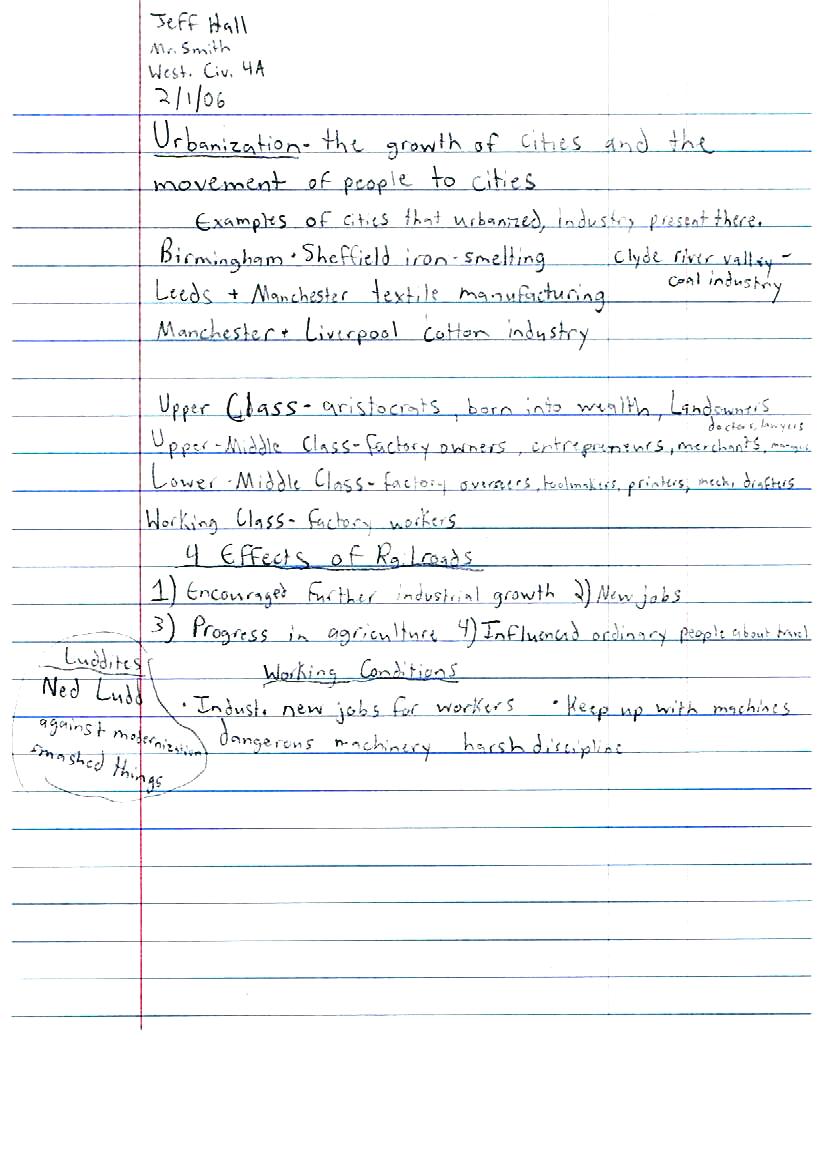 Jeff Hall
Mr. Smith
West. Civ. 4A
2/1/06
Urbanization - the growth of cities and the
movement of people to cities
Examples of cities that urbanized, industry present there.
Birmingham · Sheffield iron-smelting
Clyde river valley -
coal industry
Leeds + Manchester textile manufacturing
Manchester + Liverpool cotton industry
Upper Class - aristocrats, born into wealth, Landowners
doctors, lawyers
Upper-Middle Class - factory owners, entrepreneurs, merchants,
Lower-Middle Class - factory overseers, toolmakers, printers, mech. drafters
Working Class - factory workers
4 Effects of Railroads
1) Encouraged further industrial growth 2) New jobs
3) Progress in agriculture 4) Influenced ordinary people about travel
Working Conditions
· Indust. new jobs for workers · Keep up with machines
dangerous machinery harsh discipline
Luddites
Ned Ludd
against modernization
smashed things